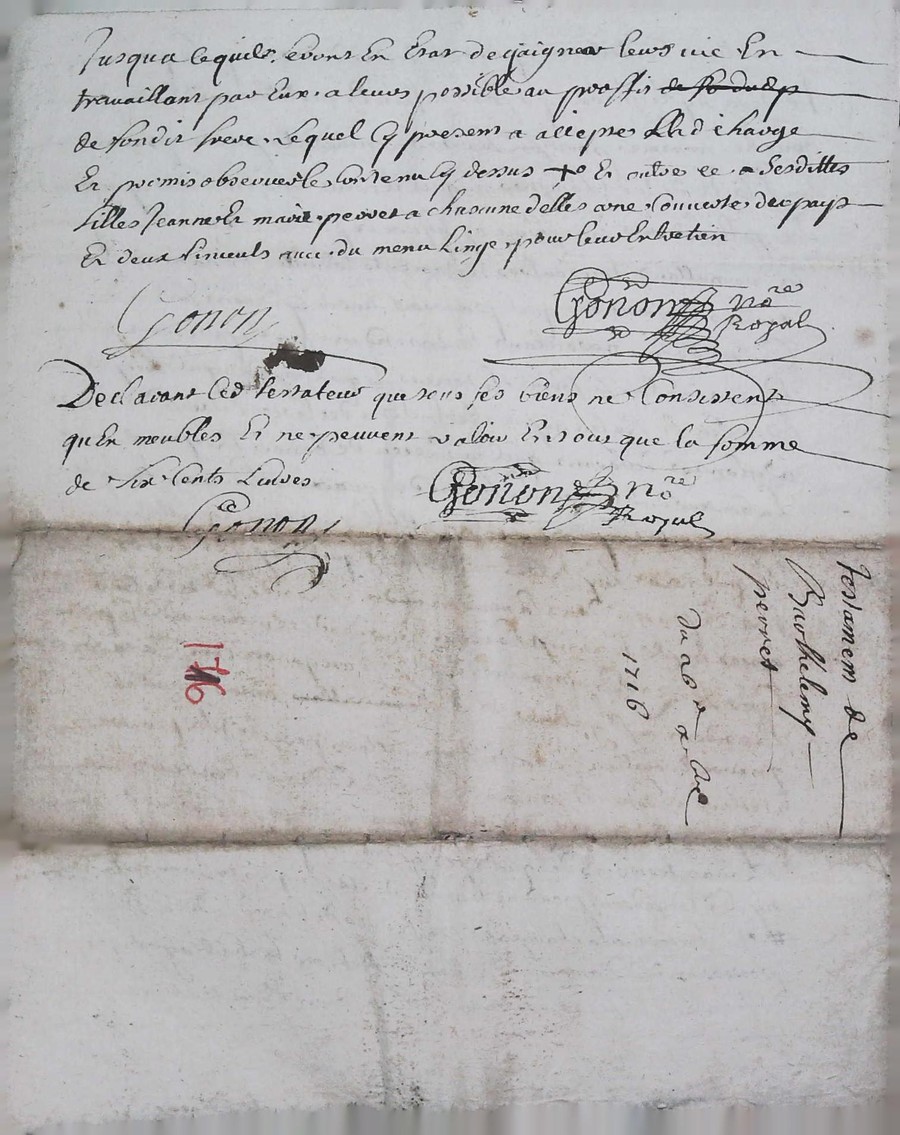 Jusqua ce quils seront En Estat de gaigner leurs vie En
travaillant par Eux a leurs possible au proffit
de sondit frere lequel cy present a accepté lad charge
Et promis observer le Contenu cy dessus + Et outre ce a sesdittes
filles Jeanne Et marie perret a chascune delles une Couverte du pays
Et deux linceuls avec du menu Linge pour leur Entretien
Gonon
Gonon no.re Royal
Declarant led testateur que tous ses biens ne Consistent
quEn meubles Et ne peuvent valoir En tout que la somme
de six cents Livres
Gonon
Gonon no.re Royal
testament de
Barthelemy
perret
du
1716
1716